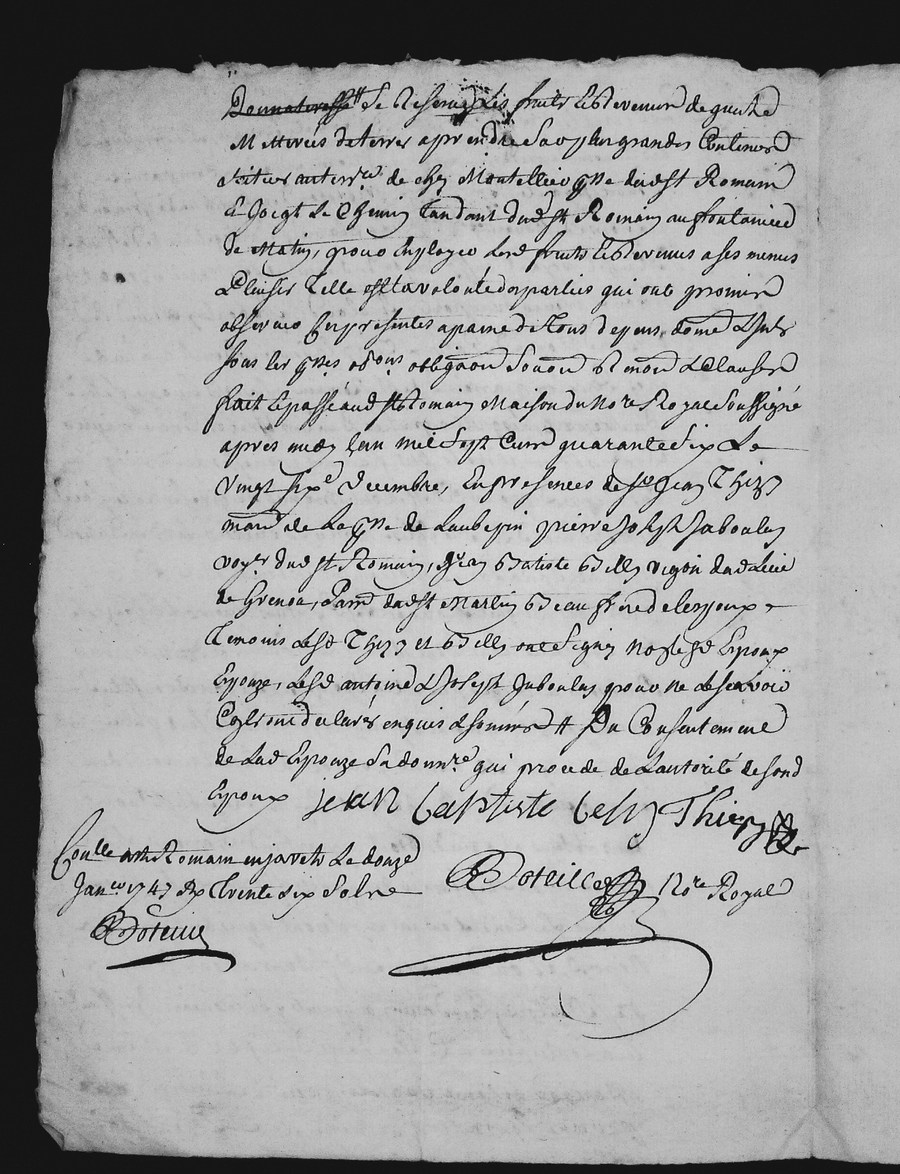 se Reserve les fruits & Revenus de quatre
Metterées de terres a prendre sa plus grandes Contenues
scituées au terre. de chez Montellier psse dud st Romain
Et Joigt Le Chemin tandant dud st Romain au fontanieu
de Matin, pour Employer Lesd fruits & Revenus a ses menus
& Plaisir Telle est la volonté des parties qui ont promis
observer Ces presentes a paine de tous depens, dome & Intz
sous les psses obons obligaon Renon & Clauses
fait & passé aud st Romain Maison du No.re Royal Soussigné
apres midy Lan mil sept Cens quarante six Le
vingt six.e decembre, En presences de sr Jean Thizy
mard de La psse de Laubepin pierre Joseph Jaboulay
voy.r dud st Romain, Jean Batiste Besly
dud st Martin Beau frere de lepoux
Temoins Lesd Thizy et Besly ont signé no Lesd Epoux
Epouze, Lesd antoine & Joseph Jaboulay pour ne Le scavoir
declarés enquis & somés # Du Consentement
de Lad Epouze sa donnre. qui procede de L'autorité de sond
Epoux jean baptiste besly Thizy
Conlle a st Romain en jarets Le douze
Janer 1747 Rx Trente six sols
Boteille No.re Royal
Boteille